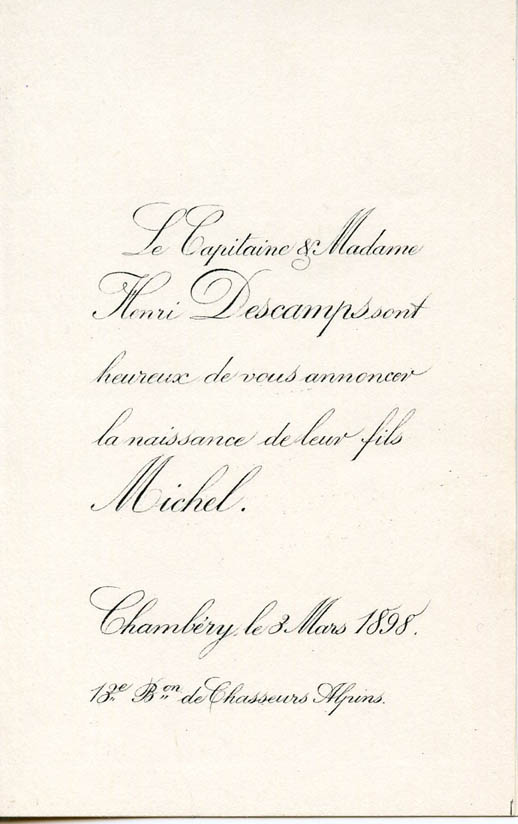 Le Capitaine & Madame
Henri Descamps sont
heureux de vous annoncer
la naissance de leur fils
Michel.
Chambéry, le 3 Mars 1898.
13e Bon de Chasseurs Alpins.